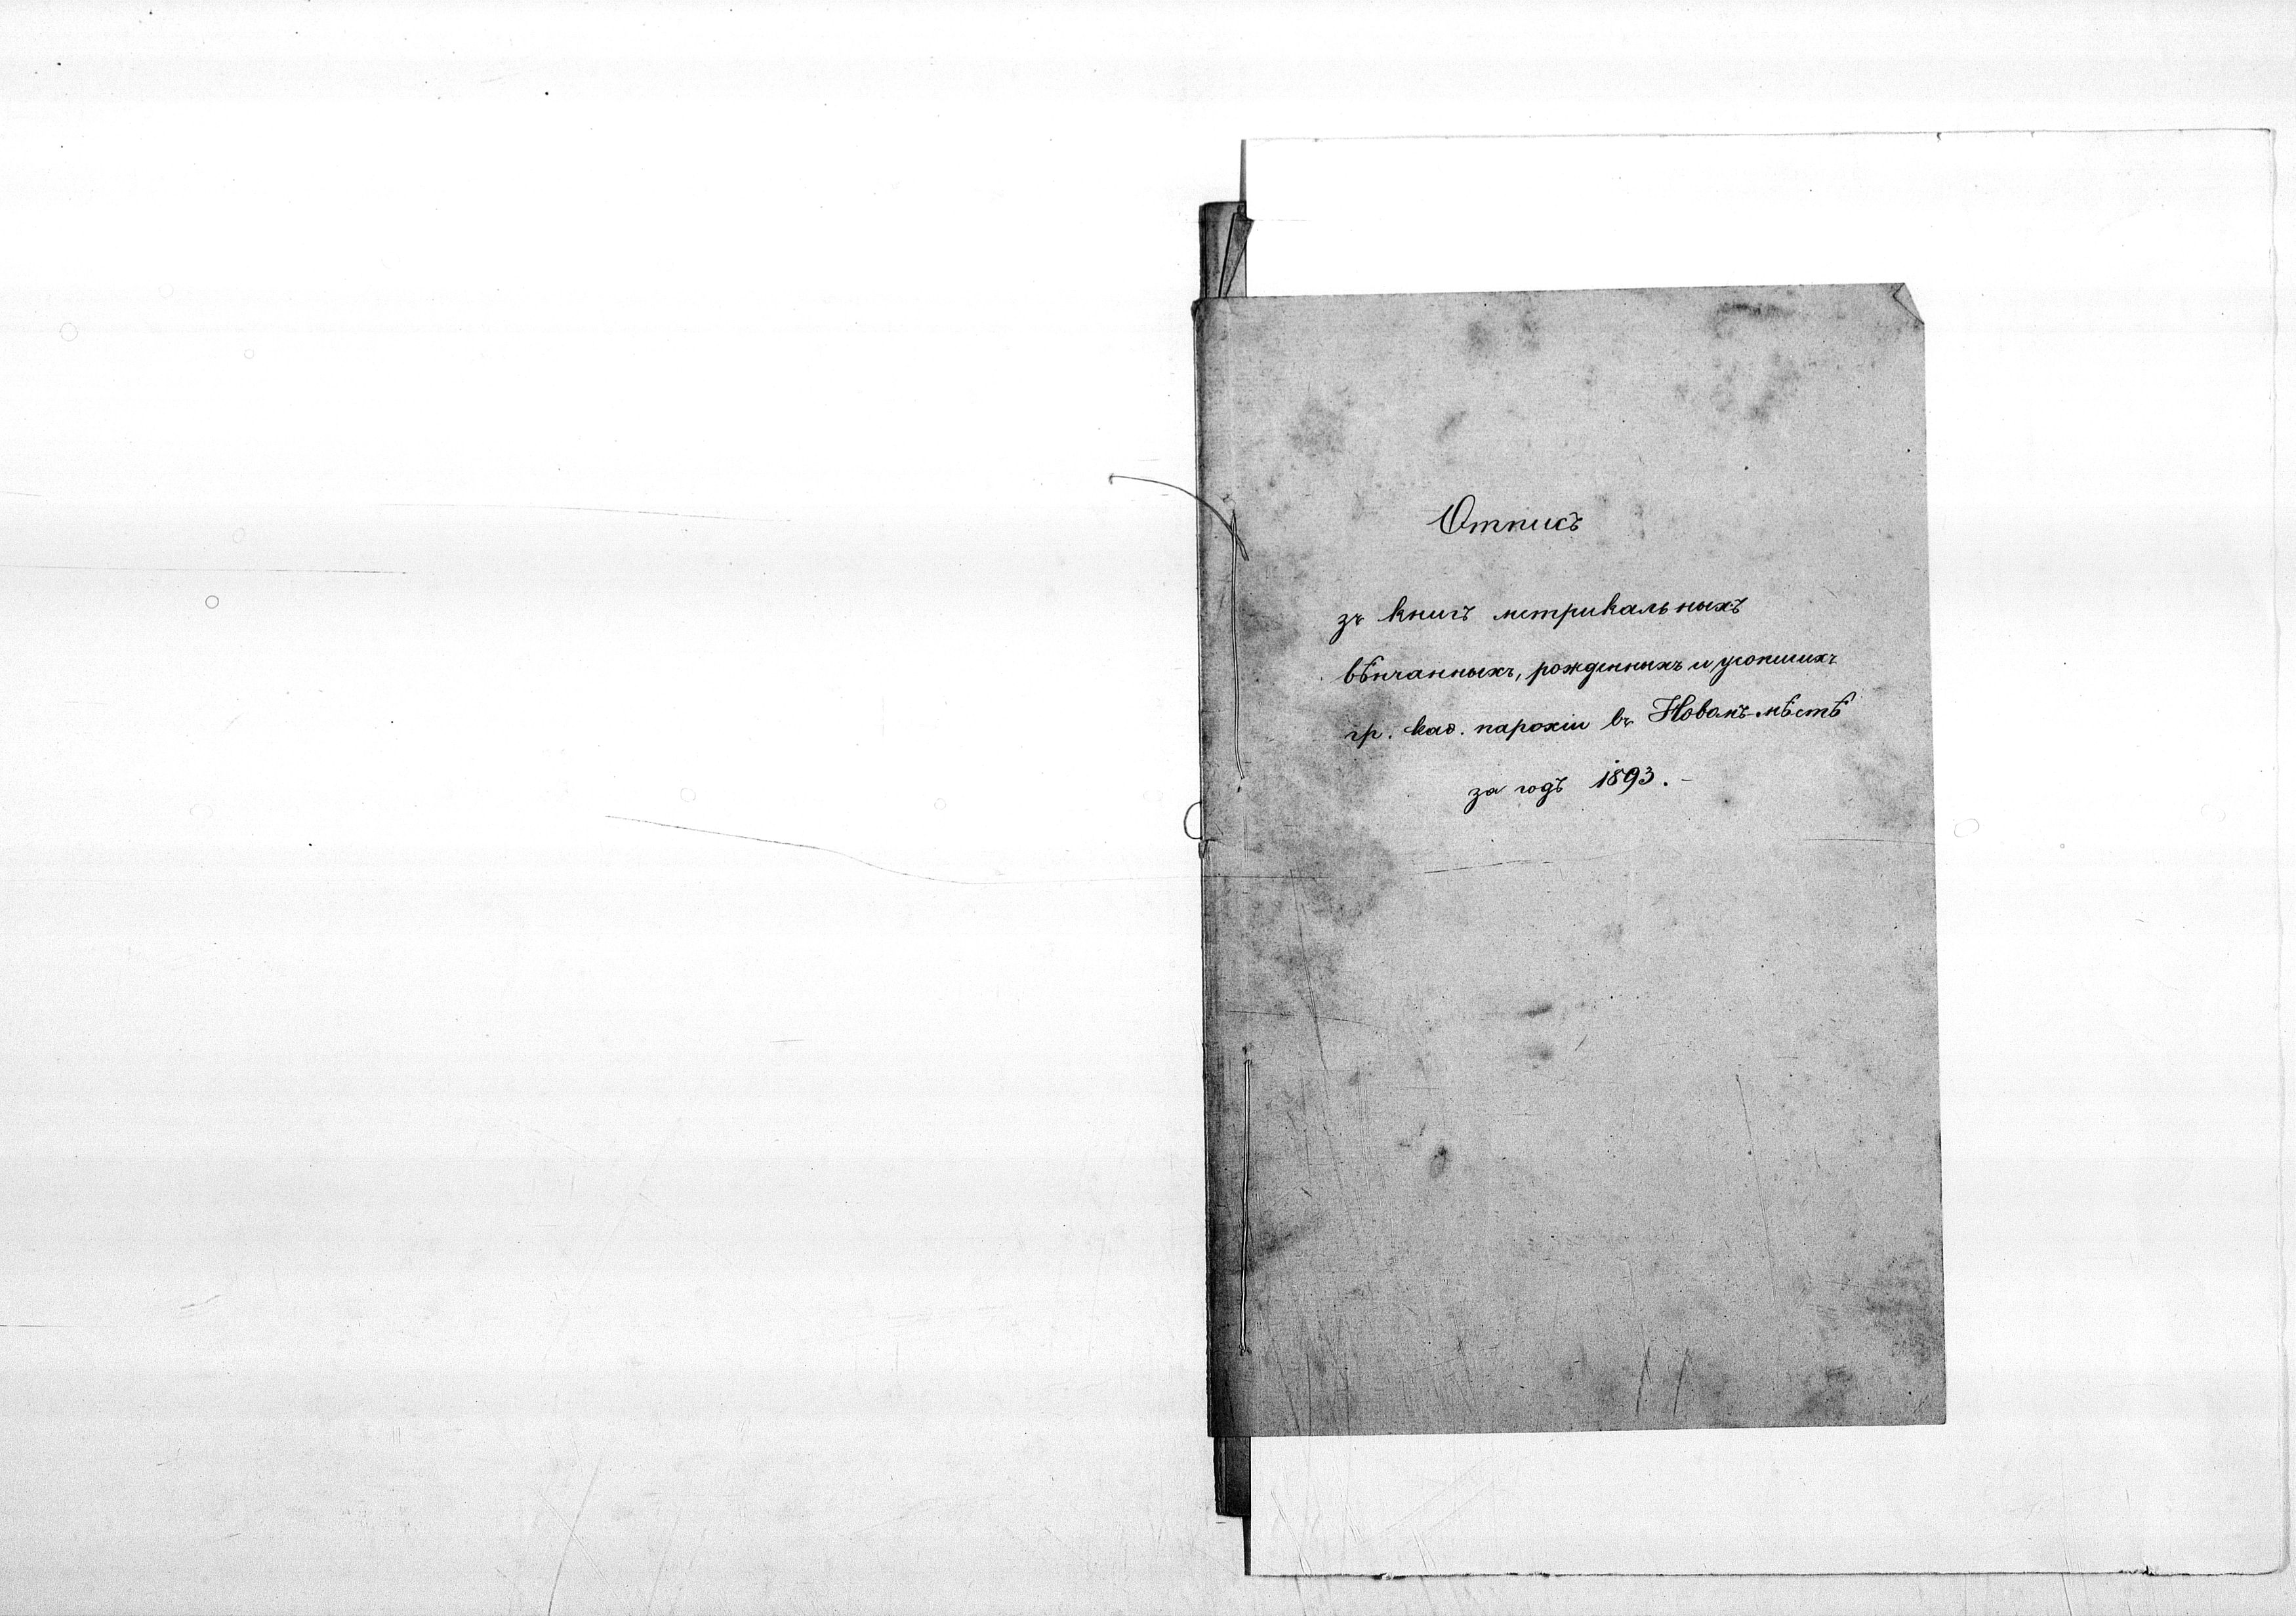 Отписъ
зъ книгъ метрикальныхъ
вѣнчанныхъ, рожденныхъ и усопшихъ
гр. каѳ. парохіи въ Новомъ-мѣстѣ
за годъ 1893. -